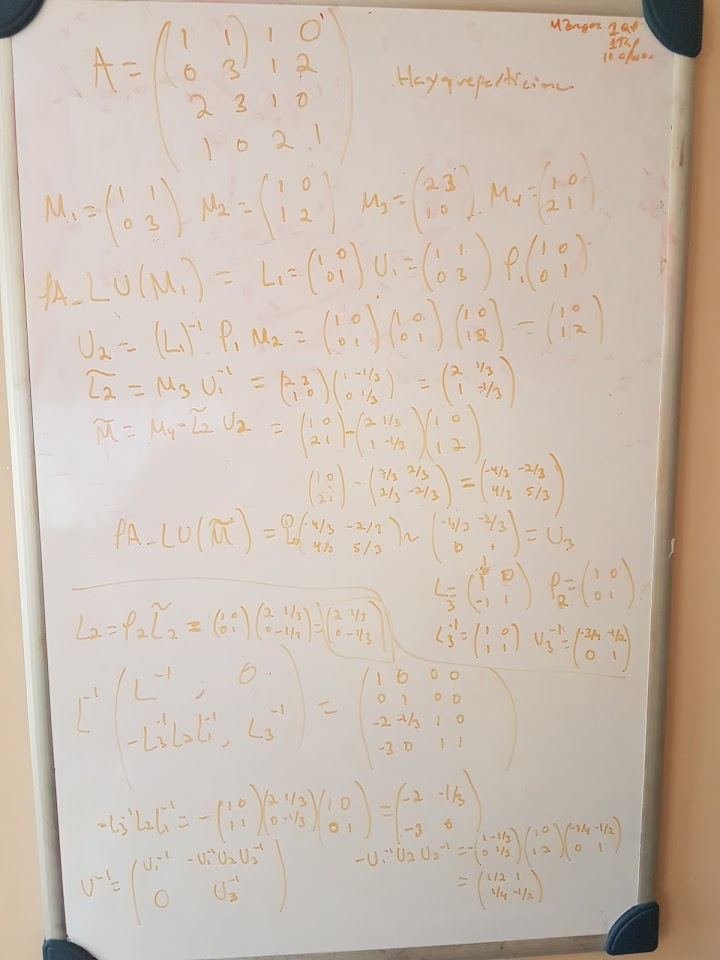 1 1 1 0
A = 0 3 1 2
2 3 1 0
1 0 2 1
M₁ = (1 1 / 0 3) M₂ = (1 0 / 1 2) M₃ = (2 3 / 1 0) M₄ = (1 0 / 2 1)
PA_LU(M₁) = L₁ = (1 0 / 0 1) U₁ = (1 1 / 0 3) P₁ (1 0 / 0 1)
U₂ = (L₁)⁻¹ P₁ M₂ = (1 0 / 0 1) (1 0 / 0 1) (1 0 / 1 2) = (1 0 / 1 2)
L̃₂ = M₃ U₁⁻¹ = (2 3 / 1 0) (1 -1/3 / 0 1/3) = (2 1/3 / 1 -1/3)
M̃ = M₄ - L̃₂ U₂ = (1 0 / 2 1) - (2 1/3 / 1 -1/3) (1 0 / 1 2)
(1 0 / 2 1) - (7/3 2/3 / 2/3 -2/3) = (-4/3 -2/3 / 4/3 5/3)
PA_LU(M̃) = (-4/3 -2/3 / 4/3 5/3) ~ (-4/3 -2/3 / 0 1) = U₃
L₃ = (1 0 / -1 1) P₂ = (1 0 / 0 1)
L₂ = P₂ L̃₂ = (1 0 / 0 1) (2 1/3 / 0 -1/3) = (2 1/3 / 0 -1/3)
L₃⁻¹ = (1 0 / 1 1) U₃⁻¹ = (-3/4 -1/2 / 0 1)
L⁻¹ (L⁻¹, 0 / -L₃⁻¹L₂L₁⁻¹, L₃⁻¹) = (1 0 0 0 / 0 1 0 0 / -2 -1/3 1 0 / -3 0 1 1)
-L₃⁻¹L₂L₁⁻¹ = -(1 0 / 1 1) (2 1/3 / 0 -1/3) (1 0 / 0 1) = (-2 -1/3 / -3 0)
U⁻¹ = (U₁⁻¹ -U₁⁻¹U₂U₃⁻¹ / 0 U₃⁻¹)
-U₁⁻¹U₂U₃⁻¹ = -(1 -1/3 / 0 1/3) (1 0 / 1 2) (-3/4 -1/2 / 0 1)
= (1/2 1 / 1/4 -1/2)